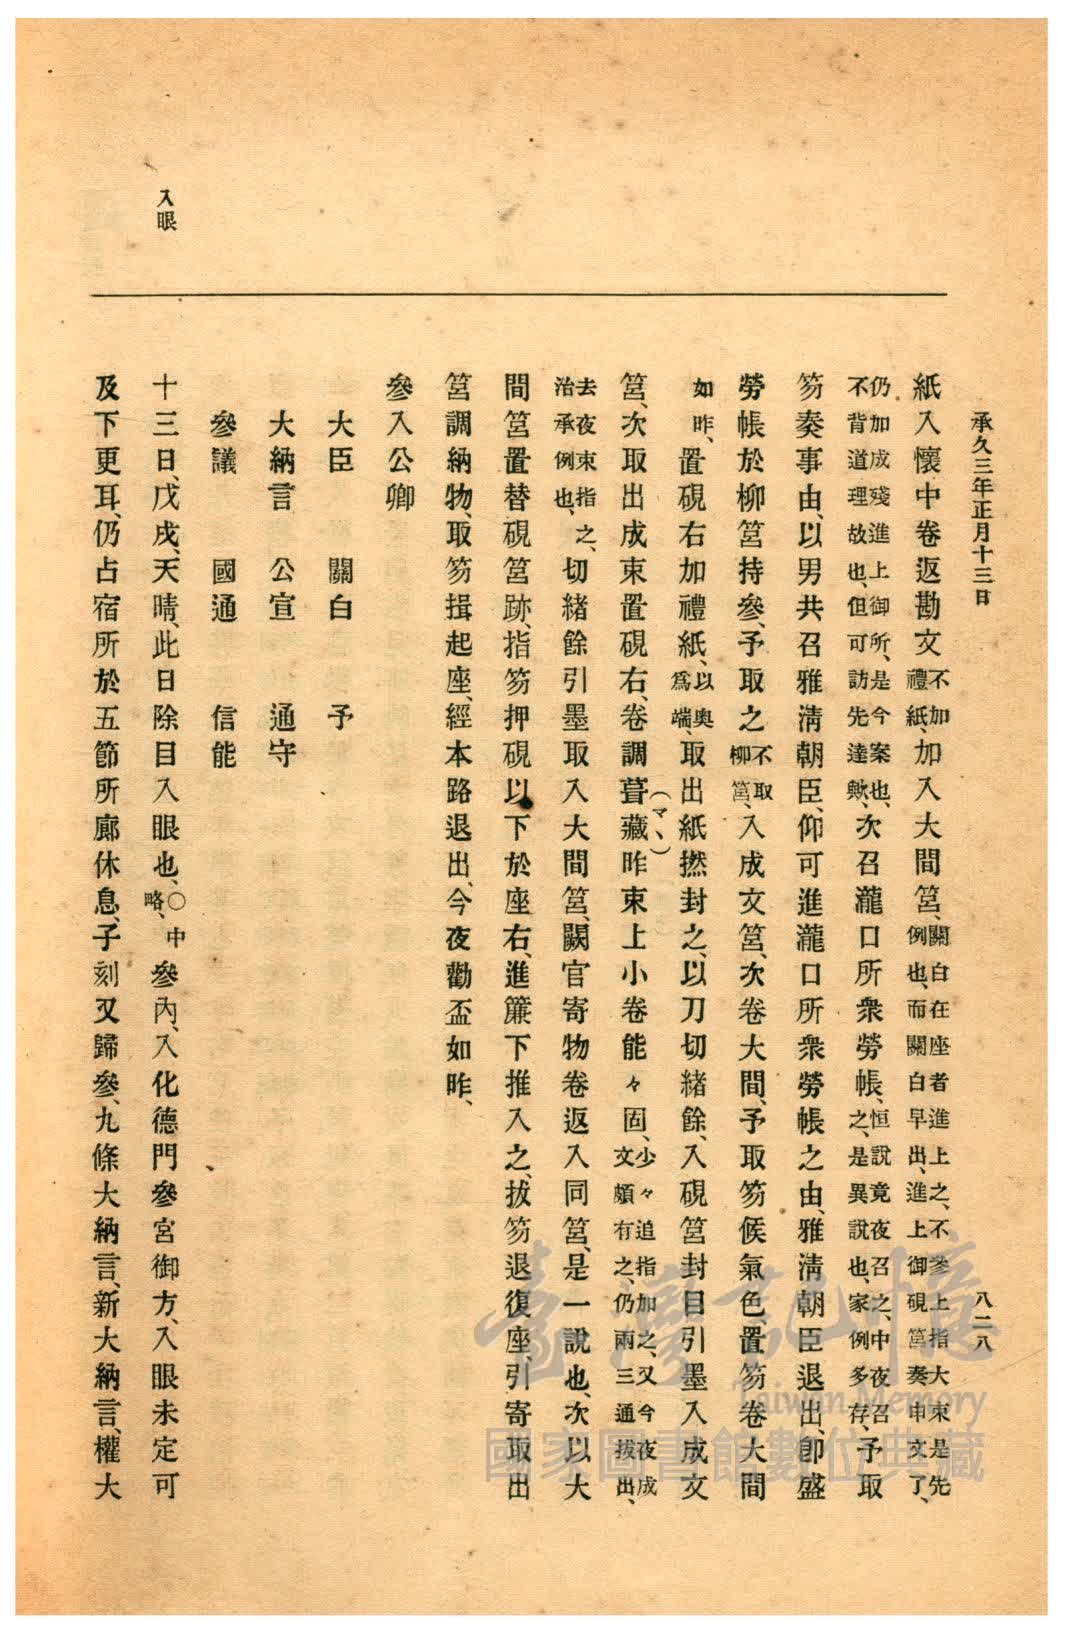 承久三年正月十三日
八二八
入眼
紙入懷中卷返勘文不加禮紙、加入大間筥、關白在座者進上之、不參上指大束是先例也、而關白早出、進上御硯筥奏申文了、
仍加成殘進上御所、是今案也、不背道理故也、但可訪先達歟、次召瀧口所衆勞帳、恒說竟夜召之、中夜召之、是異說也、家例多存、予取
笏奏事由、以男共召雅淸朝臣、仰可進瀧口所衆勞帳之由、雅淸朝臣退出、卽盛
勞帳於柳筥持參、予取之不取柳筥、入成文筥、次卷大間、予取笏候氣色、置笏卷大間
如昨、置硯右加禮紙、以奧爲端、取出紙撚封之、以刀切緖餘、入硯筥封目引墨入成文
筥、次取出成束置硯右、卷調葺藏(マヽ)昨束上小卷能々固、少々追指加之、又今夜成文頗有之、仍兩三通拔出、
去夜束指之、治承例也、切緖餘引墨取入大間筥、闕官寄物卷返入同筥、是一說也、次以大
間筥置替硯筥跡、指笏押硯以下於座右、進簾下推入之、拔笏退復座、引寄取出
筥調納物、取笏揖起座、經本路退出、今夜勸盃如昨、
參入公卿
大臣　關白　予
大納言　公宣　通守
參議　國通　信能
十三日、戊戌、天晴、此日除目入眼也、○中略、參內、入化德門參宮御方、入眼未定可
及下更耳、仍占宿所於五節所廊休息、子刻又歸參、九條大納言、新大納言、權大
臺灣記憶
Taiwan Memory
國家圖書館數位典藏